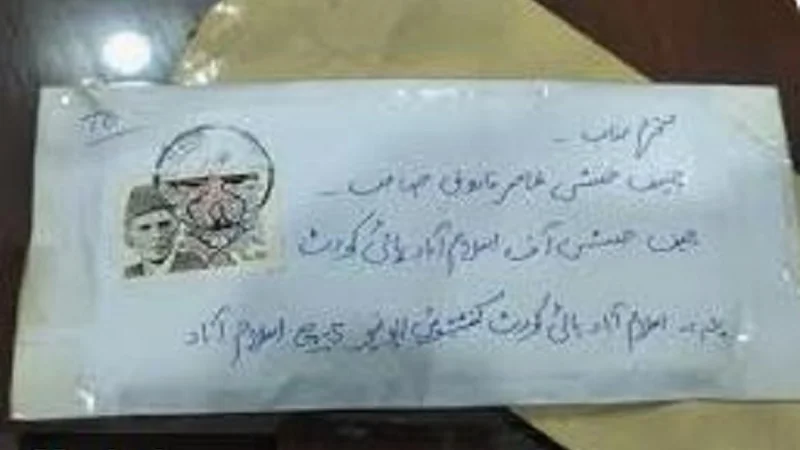 To,
محترم جناب -
چیف جسٹس عامر فاروق صاحب -
چیف جسٹس آف اسلام آباد ہائی کورٹ
پتہ :- اسلام آباد ہائی کورٹ کنسٹیٹیوشن ایونیو جی 5 اسلام آباد